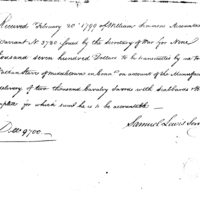 Received February 20th 1799 of William Simmons Accountant
Warrant No. 3780 issued by the Secretary of War for Nine
thousand seven hundred Dollars to be transmitted by me to
Nathan Starr of Middletown in Conn. on account of the Manufac
delivery of two thousand Cavalry Swords with Scabbards &
complete for which sum he is to be accountable
Samuel Lewis Senr
Dlls 9700.